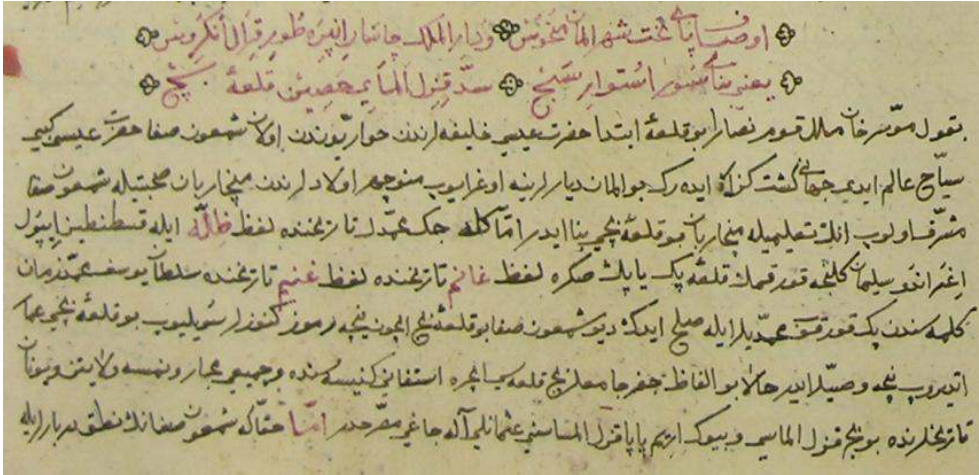 اوصاف پای تخت شهر المان منحوس و دار الملك چاساران ایپره ظور قرال انكروس
یعنی بنای كشور استوار بسنج سد قزل المای حصین قلعۀ بچ
بقول مورخان ملل قوم نصارا بو قلعۀ ابتدا حضرت عیسی خلیفه لرندن حواریوندن اولان شمعون صفا حضرت عیسی كیبی
سیاح عالم ایدی جهانی كشت كزار ایده رك بو المان دیارلرینه اوغرایوب منوچهر اولادلرندن منچاریان صحبتیله شمعون صفا
مشرف اولوب انك تعلیمیله منچاریان بو قلعۀ بچی بنا ایدر اما كله جك محمدك تاریخنده لفظ ایله قسطنطین
سلیمان كلنجه قورقمك قلعۀ پك یاپك صكره لفظ غانم تاریخنده لفظ غنیم تاریخنده سلطان یوسف محمد زمان
كلمه سندن پك قورقوب محمدیلر ایله صلح ایدك دیو شمعون صفا بو قلعۀ بچ ایچون نیچه رموز كنوزلر سویلیوب بو قلعۀ بچی
ایتدیروب نیچه وصیتلر ایدر حالا بو الفاظ جفر جامعلر بچ قلعه سی ایچره استفانی كنیسه سنده و جمیعی مجار و نمسه ولایتن و یونان
تاریخلرنده بو بچ قزل الماسی و بیوك ایریم پاپا قزل الماسنی عثمانلی آله جاغی مقرردر اما حقا كه شمعون صفانك نطق دربارلریله